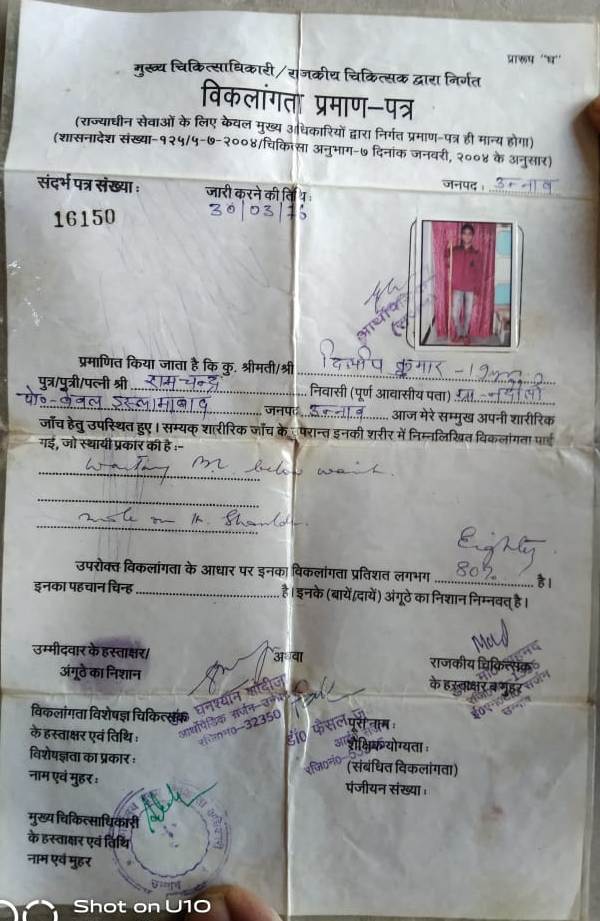 प्रारूप "घ"
मुख्य चिकित्साधिकारी/राजकीय चिकित्सक द्वारा निर्गत
विकलांगता प्रमाण-पत्र
(राज्याधीन सेवाओं के लिए केवल मुख्य अधिकारियों द्वारा निर्गत प्रमाण-पत्र ही मान्य होगा)
(शासनादेश संख्या-१२५/५-७-२००४/चिकित्सा अनुभाग-७ दिनांक जनवरी, २००४ के अनुसार)
संदर्भ पत्र संख्या : जारी करने की तिथि : जनपद : उन्नाव
16150 30/03/
प्रमाणित किया जाता है कि कु. श्रीमती/श्री दिलीप कुमार
पुत्र/पुत्री/पत्नी श्री रामचन्द्र निवासी (पूर्ण आवासीय पता) ग्रा०
पो० इस्लामाबाद जनपद उन्नाव आज मेरे सम्मुख अपनी शारीरिक
जाँच हेतु उपस्थित हुए। सम्यक् शारीरिक जाँच के उपरान्त इनकी शरीर में निम्नलिखित विकलांगता पाई
गई, जो स्थायी प्रकार की है :-
below
mole on
Eighty
उपरोक्त विकलांगता के आधार पर इनका विकलांगता प्रतिशत लगभग 80% है।
इनका पहचान चिन्ह है। इनके (बायें/दायें) अंगूठे का निशान निम्नवत् है।
उम्मीदवार के हस्ताक्षर/ अथवा राजकीय चिकित्सक
अंगूठे का निशान के हस्ताक्षर व मुहर
घनश्याम
आर्थोपैडिक सर्जन
रजि०न०-32350
डॉ० फैसल
विकलांगता विशेषज्ञ चिकित्सक पूरा नाम :
के हस्ताक्षर एवं तिथि : शैक्षिक योग्यता :
विशेषज्ञता का प्रकार : (संबंधित विकलांगता)
नाम एवं मुहर : पंजीयन संख्या :
मुख्य चिकित्साधिकारी
के हस्ताक्षर एवं तिथि
नाम एवं मुहर
उन्नाव
Shot on U10